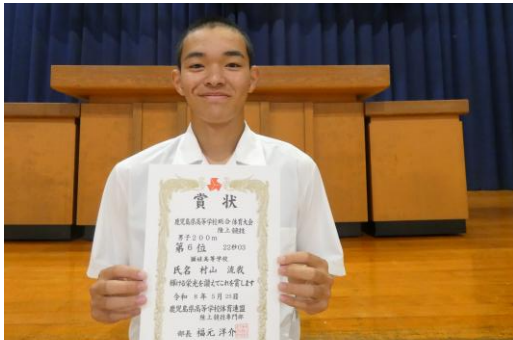 賞状
鹿児島県高等学校総合体育大会
陸上競技
男子200m
第6位 22秒03
高等学校
氏名 村山 流我
輝ける栄光を讃えてこれを賞します
令和 年 5月 日
鹿児島県高等学校体育連盟
陸上競技専門部
部長 福元 洋介